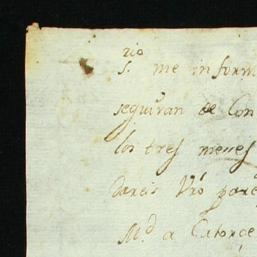 rio
s. me inform
seguiran de Con
los tres meses
dareis Vro pare
Md a Catorce